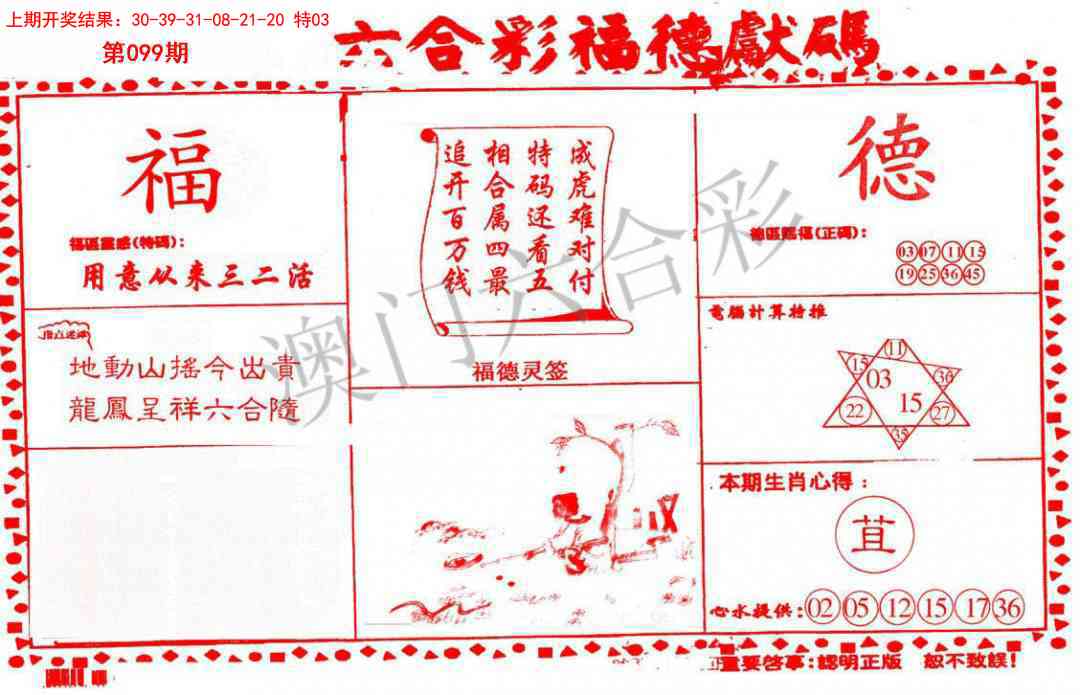 上期开奖结果：30-39-31-08-21-20 特03
第099期
六合彩福德獻碼
福
福區靈感(特碼)：
用意从来三二活
地動山搖今出貴
龍鳳呈祥六合隨
成虎难对付
特码还看五
相合属四最
追开百万钱
福德灵签
德
德區賜福(正碼)：
03 07 11 15
19 25 36 45
電腦計算特推
11
15 36
03
15
22 27
35
本期生肖心得：
苴
心水提供：02 05 12 15 17 36
重要啓事：認明正版 恕不致誤！
澳门六合彩